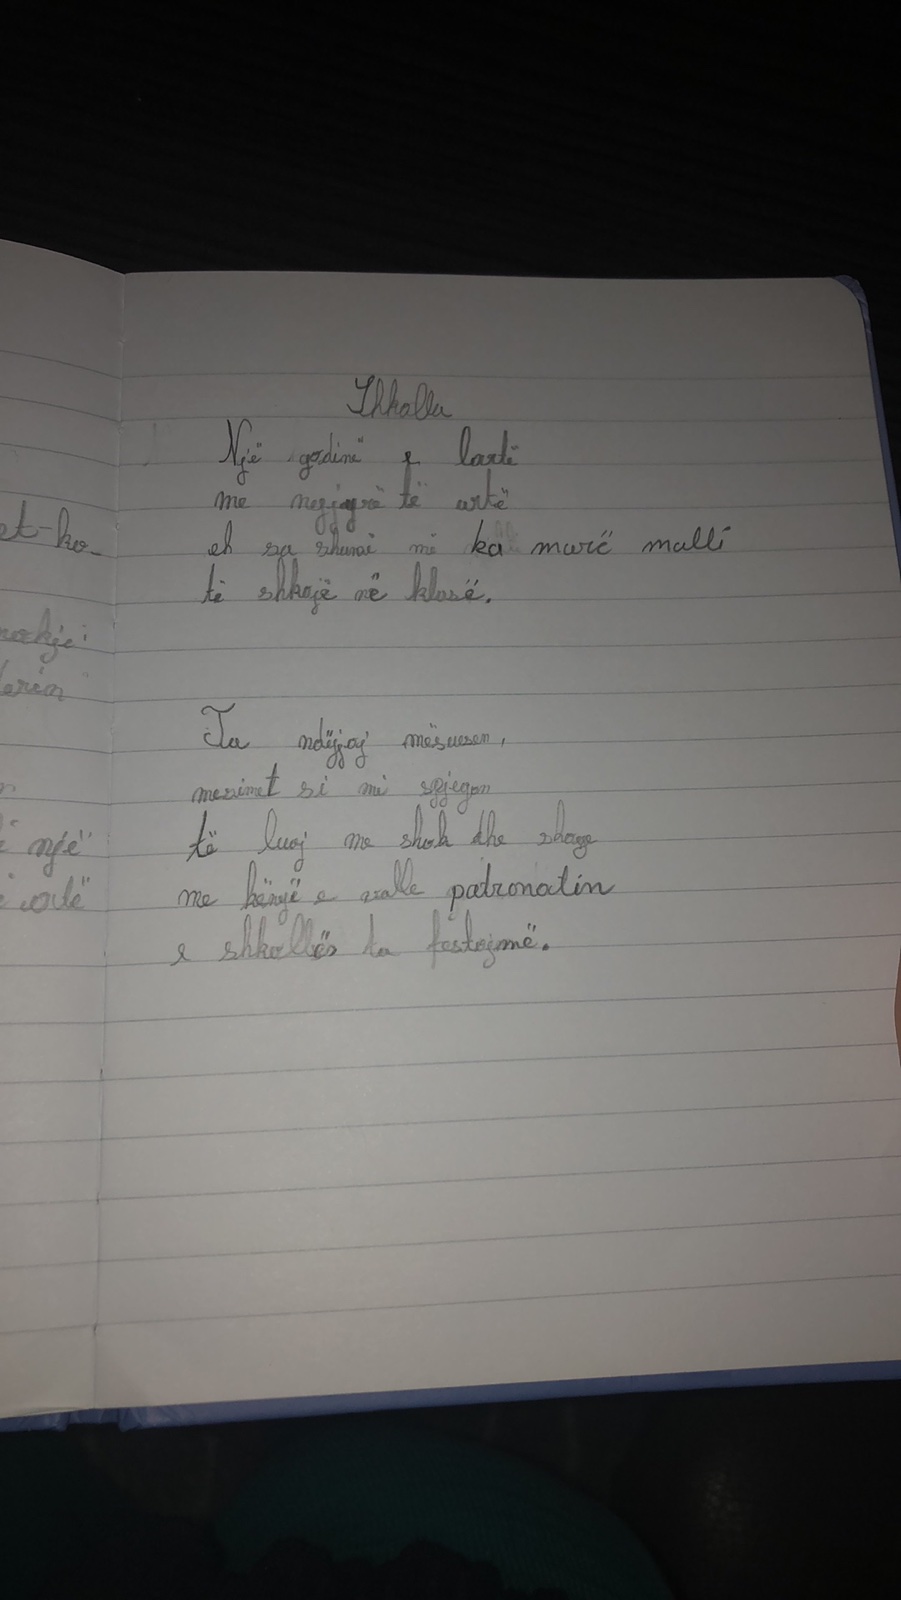 Shkolla
Një godinë e lartë
me ngjyrë të artë
eh sa shumë më ka marë malli
të shkojë në klasë.
Ta ndëgjoj mësuesen,
mesimet si mi spjegon
të luaj me shok dhe shoqe
me këngë e valle patronatin
e shkollës ta festojmë.
et-ko-
një